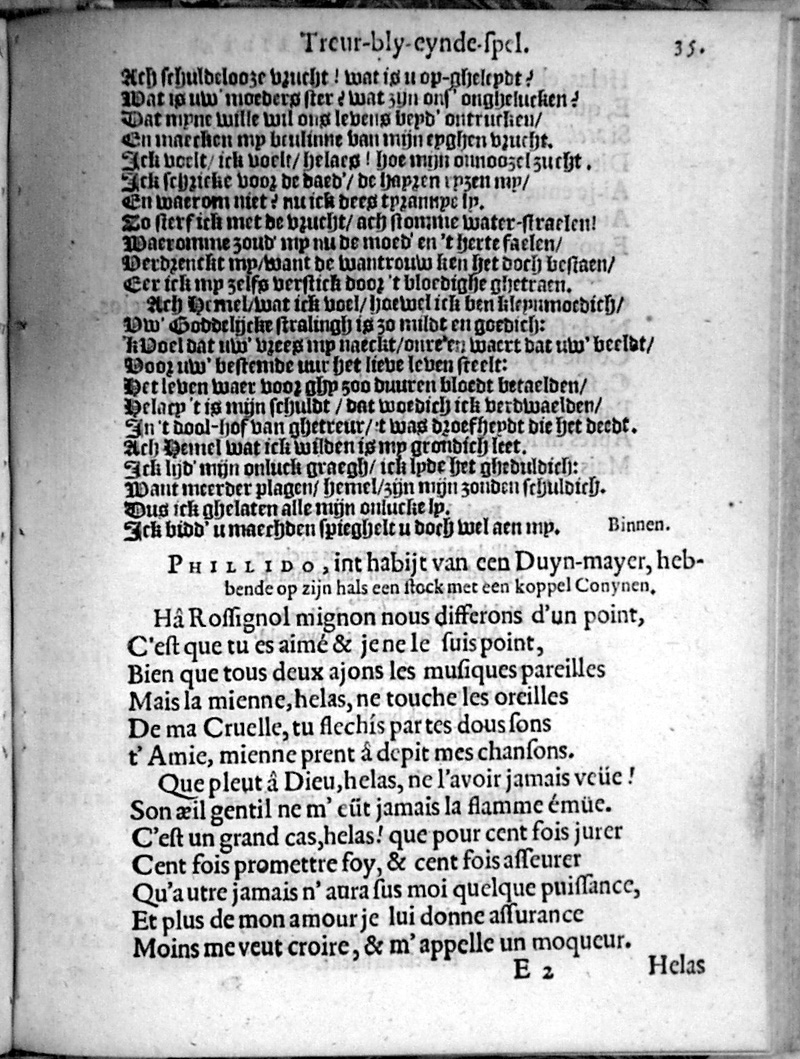 Treur-bly-eynde-spel. 35.
Ach schuldelooze vrucht! wat is u op-gheleydt?
Wat is uw' moeders ster? wat zijn ons' onghelucken?
Dat myne wille wil ons levens beyd' ontrucken/
En maecken my beulinne van mijn eyghen vrucht.
Ick voelt/ ick voelt/ helaes! hoe mijn onnoozel zucht.
Ick schricke voor de daed'/ de hayren ryzen my/
En waerom niet? nu ick dees tyrannye ly.
Zo sterf ick met de vrucht/ ach stomme water-straelen!
Waeromme zoud' my nu de moed' en 't herte faelen/
Verdrenckt my/want de wantrouw ken het doch bestaen/
Eer ick my zelfs verstick door 't bloedighe ghetraen.
Ach Hemel/wat ick voel/ hoewel ick ben kleynmoedich/
Vw' Goddelijcke stralingh is zo mildt en goedich:
'kVoel dat uw' vrees my naeckt/onre'en waert dat uw' beeldt/
Voor uw' bestemde uur het lieve leven steelt:
Het leven waer voor ghy zoo duuren bloedt betaelden/
Helaey 't is mijn schuldt / dat woedich ick verdwaelden/
In 't dool-hof van ghetreur/ 't was droefheydt die het deedt.
Ach Hemel wat ick wilden is my grondich leet.
Ick lijd' mijn onluck graegh/ ick lyde het gheduldich:
Want meerder plagen/ hemel/zijn mijn zonden schuldich.
Dus ick ghelaten alle mijn onlucke ly.
Ick bidd' u maechden spieghelt u doch wel aen my. Binnen.
PHILLIDO, int habijt van een Duyn-mayer, heb-
bende op zijn hals een stock met een koppel Conynen.
Hâ Rossignol mignon nous differons d'un point,
C'est que tu es aimé & je ne le suis point,
Bien que tous deux ajons les musiques pareilles
Mais la mienne, helas, ne touche les oreilles
De ma Cruelle, tu flechis par tes dous sons
t' Amie, mienne prent â depit mes chansons.
Que pleut â Dieu, helas, ne l'avoir jamais veüe!
Son æil gentil ne m' eüt jamais la flamme émüe.
C'est un grand cas, helas! que pour cent fois jurer
Cent fois promettre foy, & cent fois asseurer
Qu'autre jamais n' aura sus moi quelque puissance,
Et plus de mon amour je lui donne assurance
Moins me veut croire, & m' appelle un moqueur.
E 2 Helas